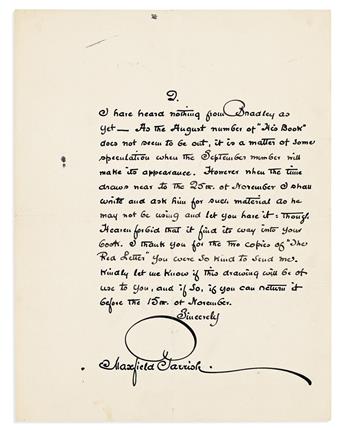 2.
I have heard nothing from Bradley as
yet — As the August number of "His Book"
does not seem to be out, it is a matter of some
speculation when the September number will
make its appearance. However when the time
draws near to the 25th. of November I shall
write and ask him for such material as he
may not be using and let you have it: though
Heaven forbid that it find its way into your
book. I thank you for the two copies of "The
Red Letter" you were so kind to send me.
Kindly let me know if this drawing will be of
use to you, and if so, if you can return it
before the 15th. of November.
Sincerely
Maxfield Parrish.